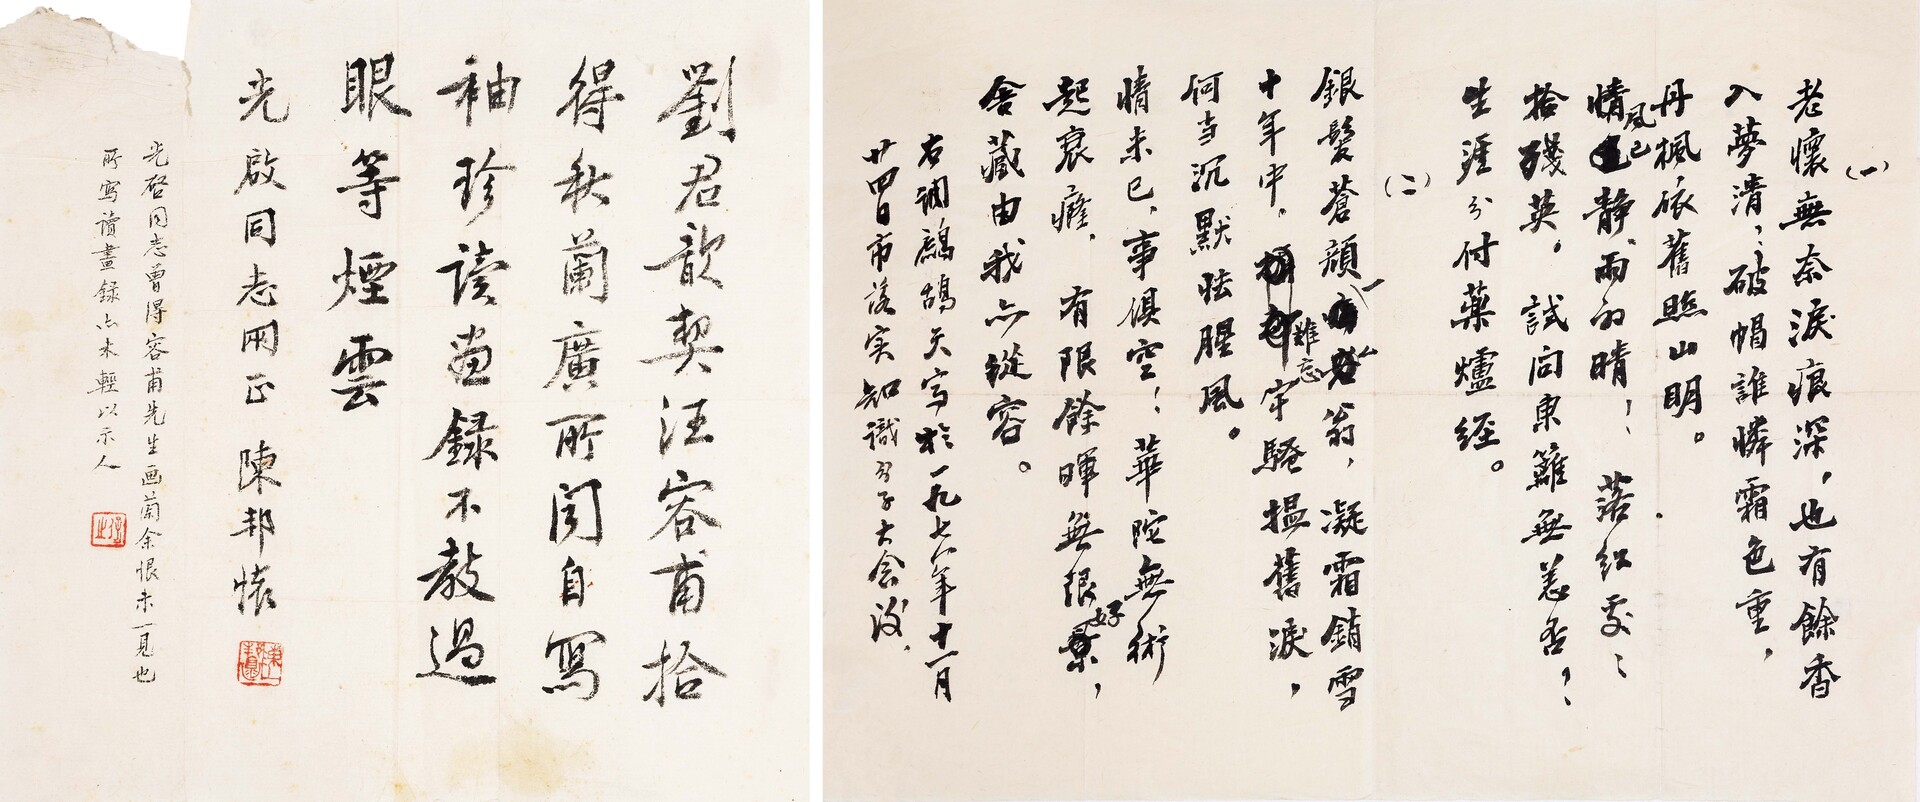 劉君歆契汪容甫拾
得秋蘭廣所聞自寫
袖珍读画録不教過
眼等煙雲
光啟同志两正 陳邦懷
光啓同志曾得容甫先生画蘭余恨未一見也
所寫讀畫録亦未輕以示人
(一)
老懷無奈淚痕深，也有餘香
入夢清，破帽誰憐霜色重，
丹楓依舊照山明。
情風已静、雨初晴！落红
拾殘英。試问東籬無恙否？
生涯分付藥爐經。
(二)
銀髮蒼顔翁，凝霜銷雪
十年中，難忘牢騷揾舊淚，
何当沉默怯腥風。
情未已，事俱空！華陀無術
起衰癃，有限餘暉無限好，
舍藏由我亦從容。
右调鷓鴣天写於一九七八年十一月
廿四日市落实知識分子大会後、